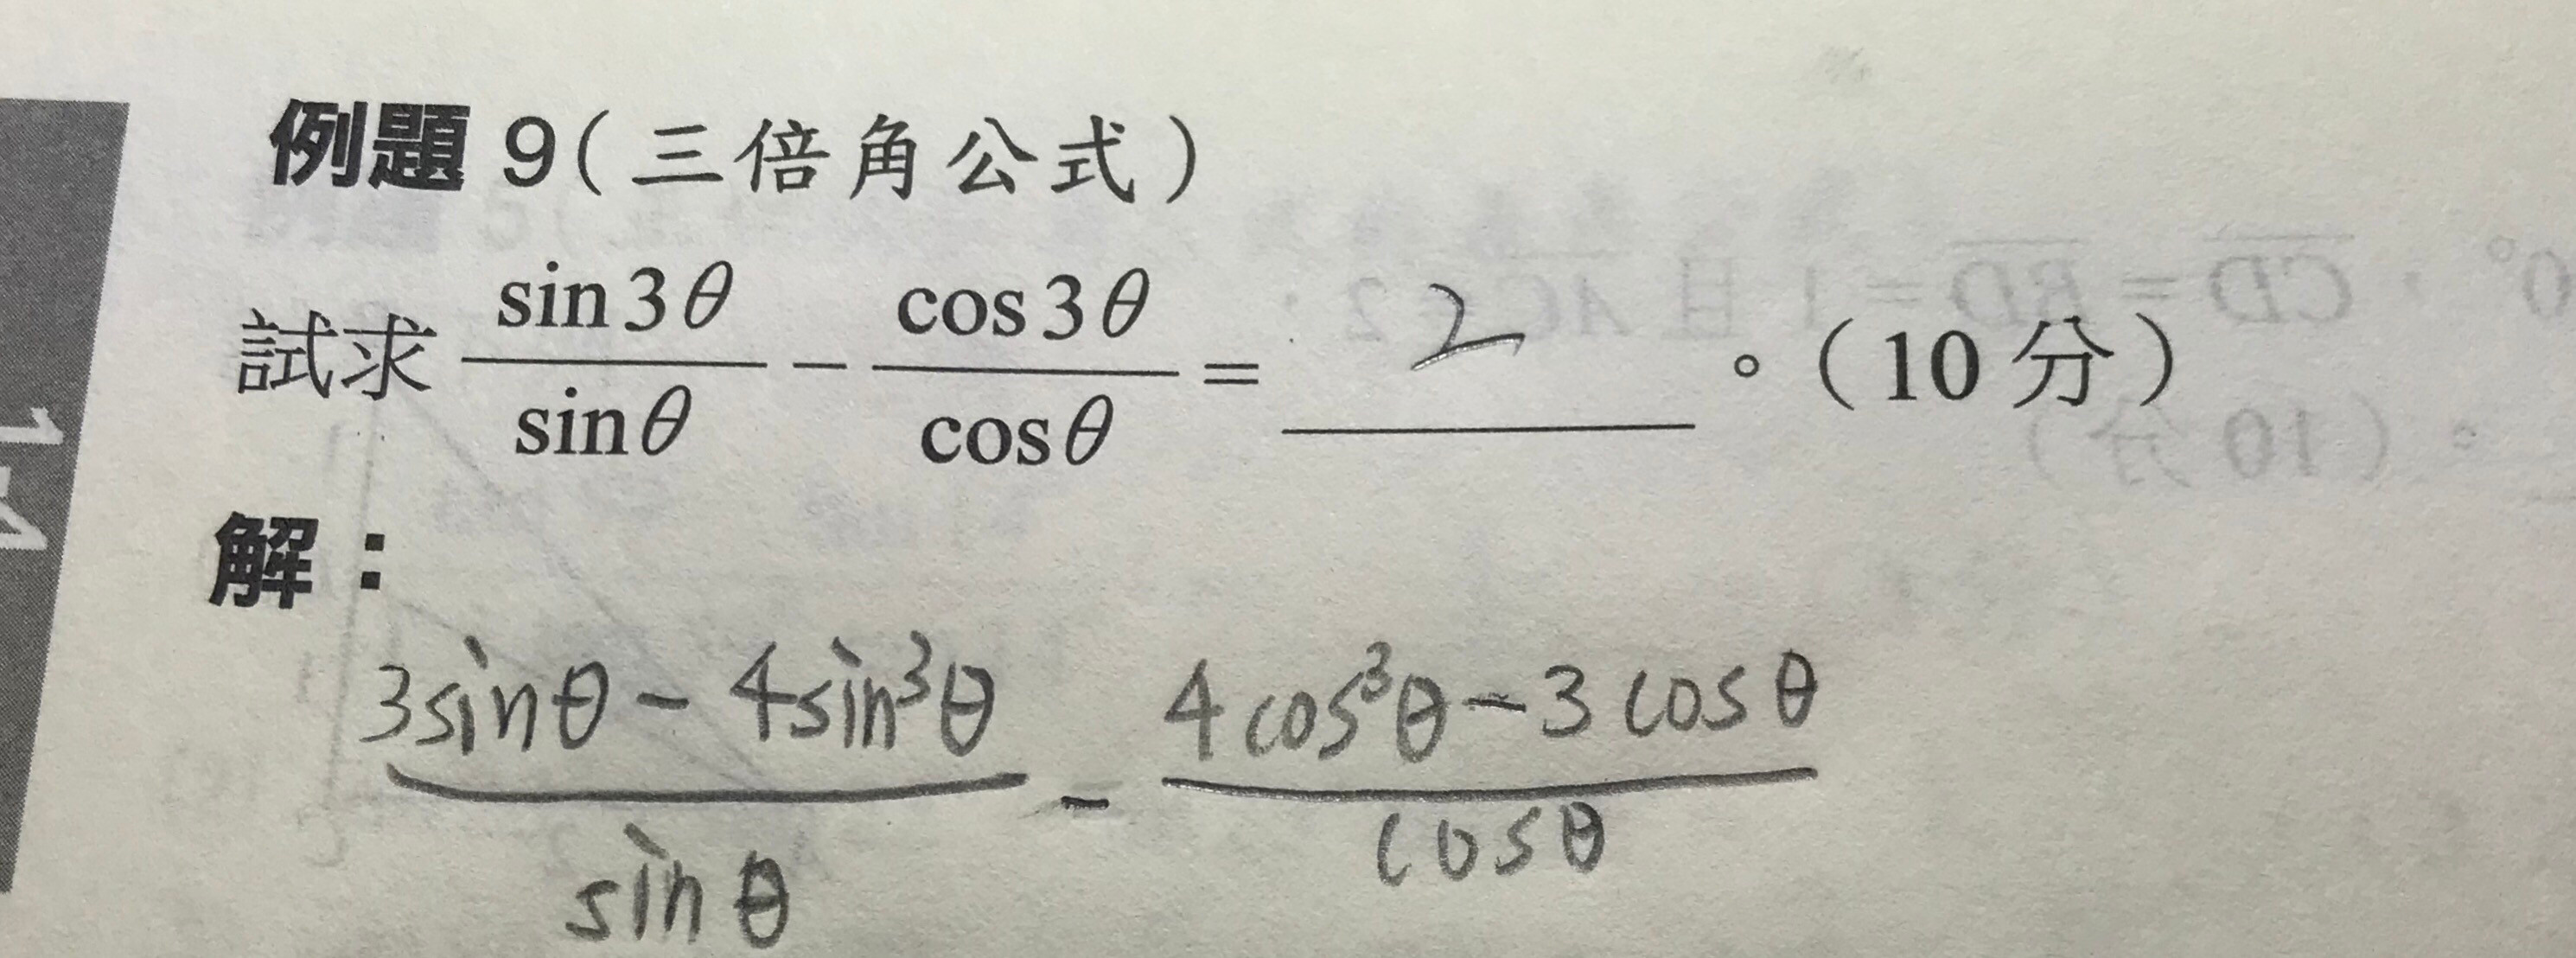 例題 9(三倍角公式)
試求 sin3θ/sinθ − cos3θ/cosθ = 2 。(10 分)
解：
3sinθ − 4sin³θ/sinθ − 4cos³θ − 3cosθ/cosθ